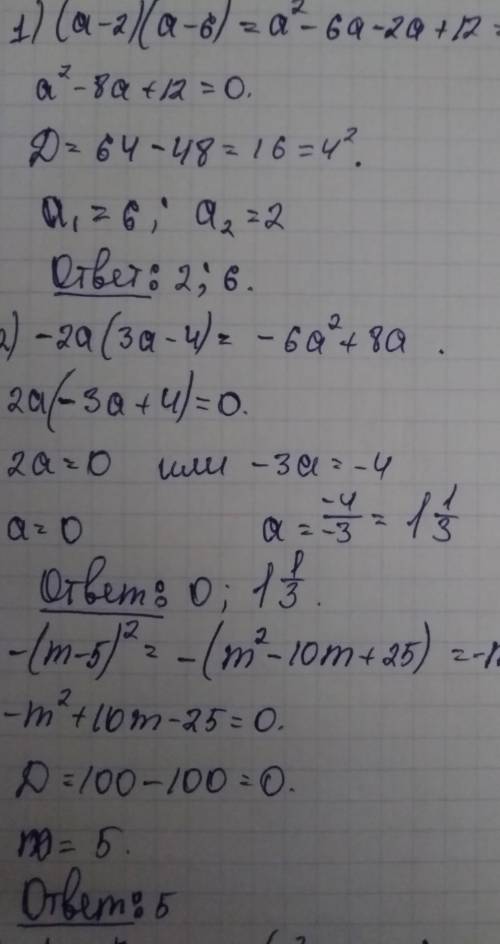 1) (a-2)(a-6) = a² - 6a - 2a + 12 =
a² - 8a + 12 = 0.
D = 64 - 48 = 16 = 4².
a₁ = 6; a₂ = 2
Ответ: 2; 6.
2) -2a(3a-4) = -6a² + 8a.
2a(-3a+4) = 0.
2a = 0 или -3a = -4
a = 0 a = -4/-3 = 1 1/3
Ответ: 0; 1 1/3.
-(m-5)² = -(m² - 10m + 25) =
-m² + 10m - 25 = 0.
D = 100 - 100 = 0.
m = 5.
Ответ: 5